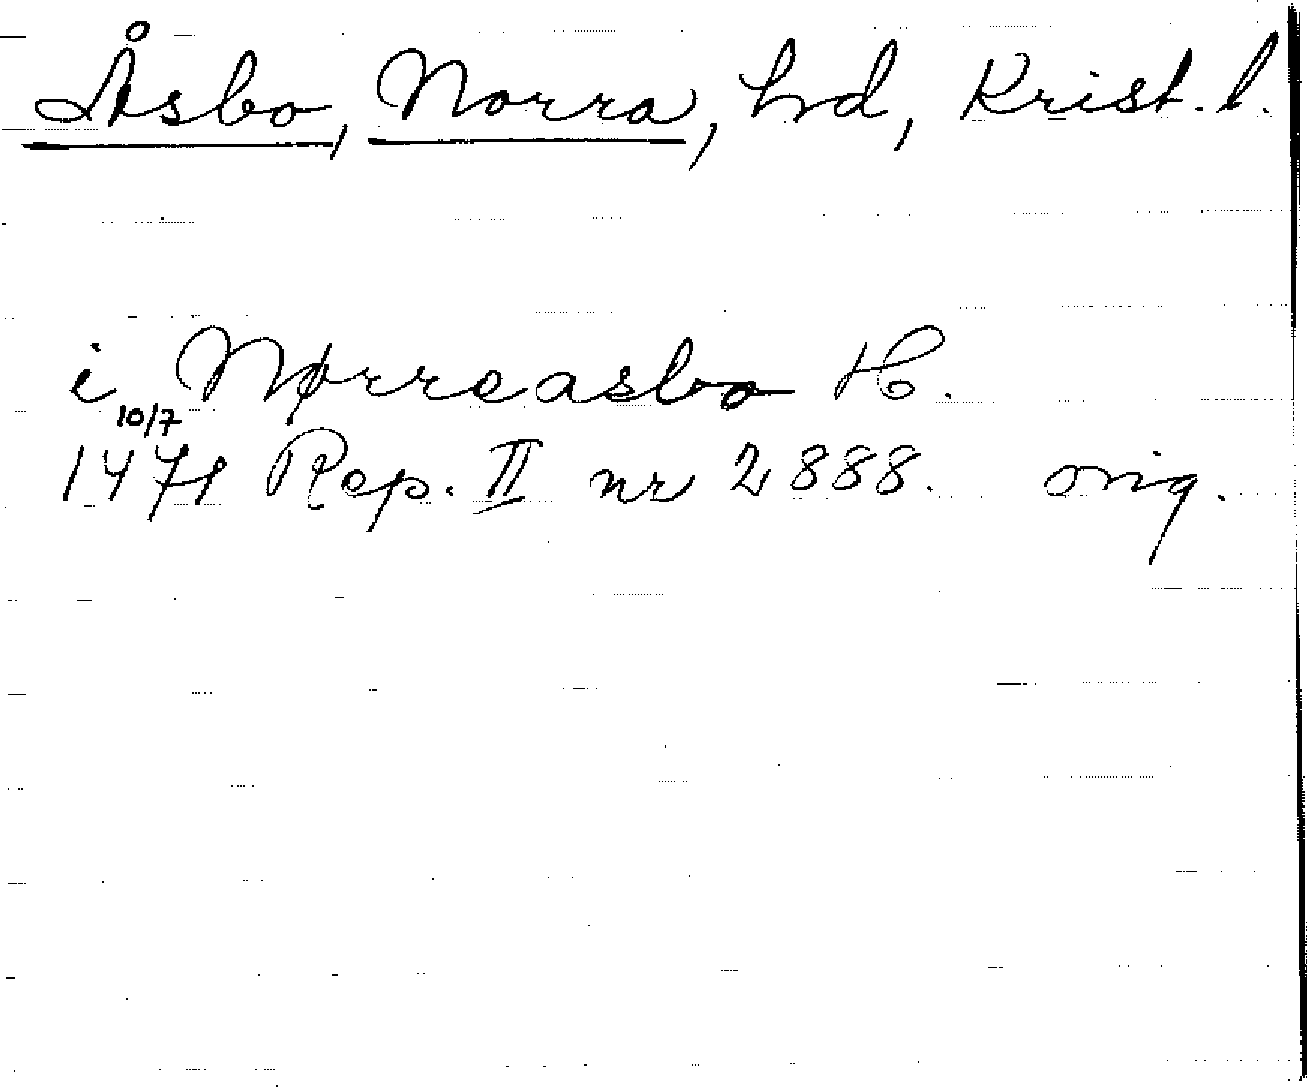 Åsbo, Norra, hd, Krist. l.
i Nørreasbo H.
10/7
1471 Rep. II nr 2888. orig.